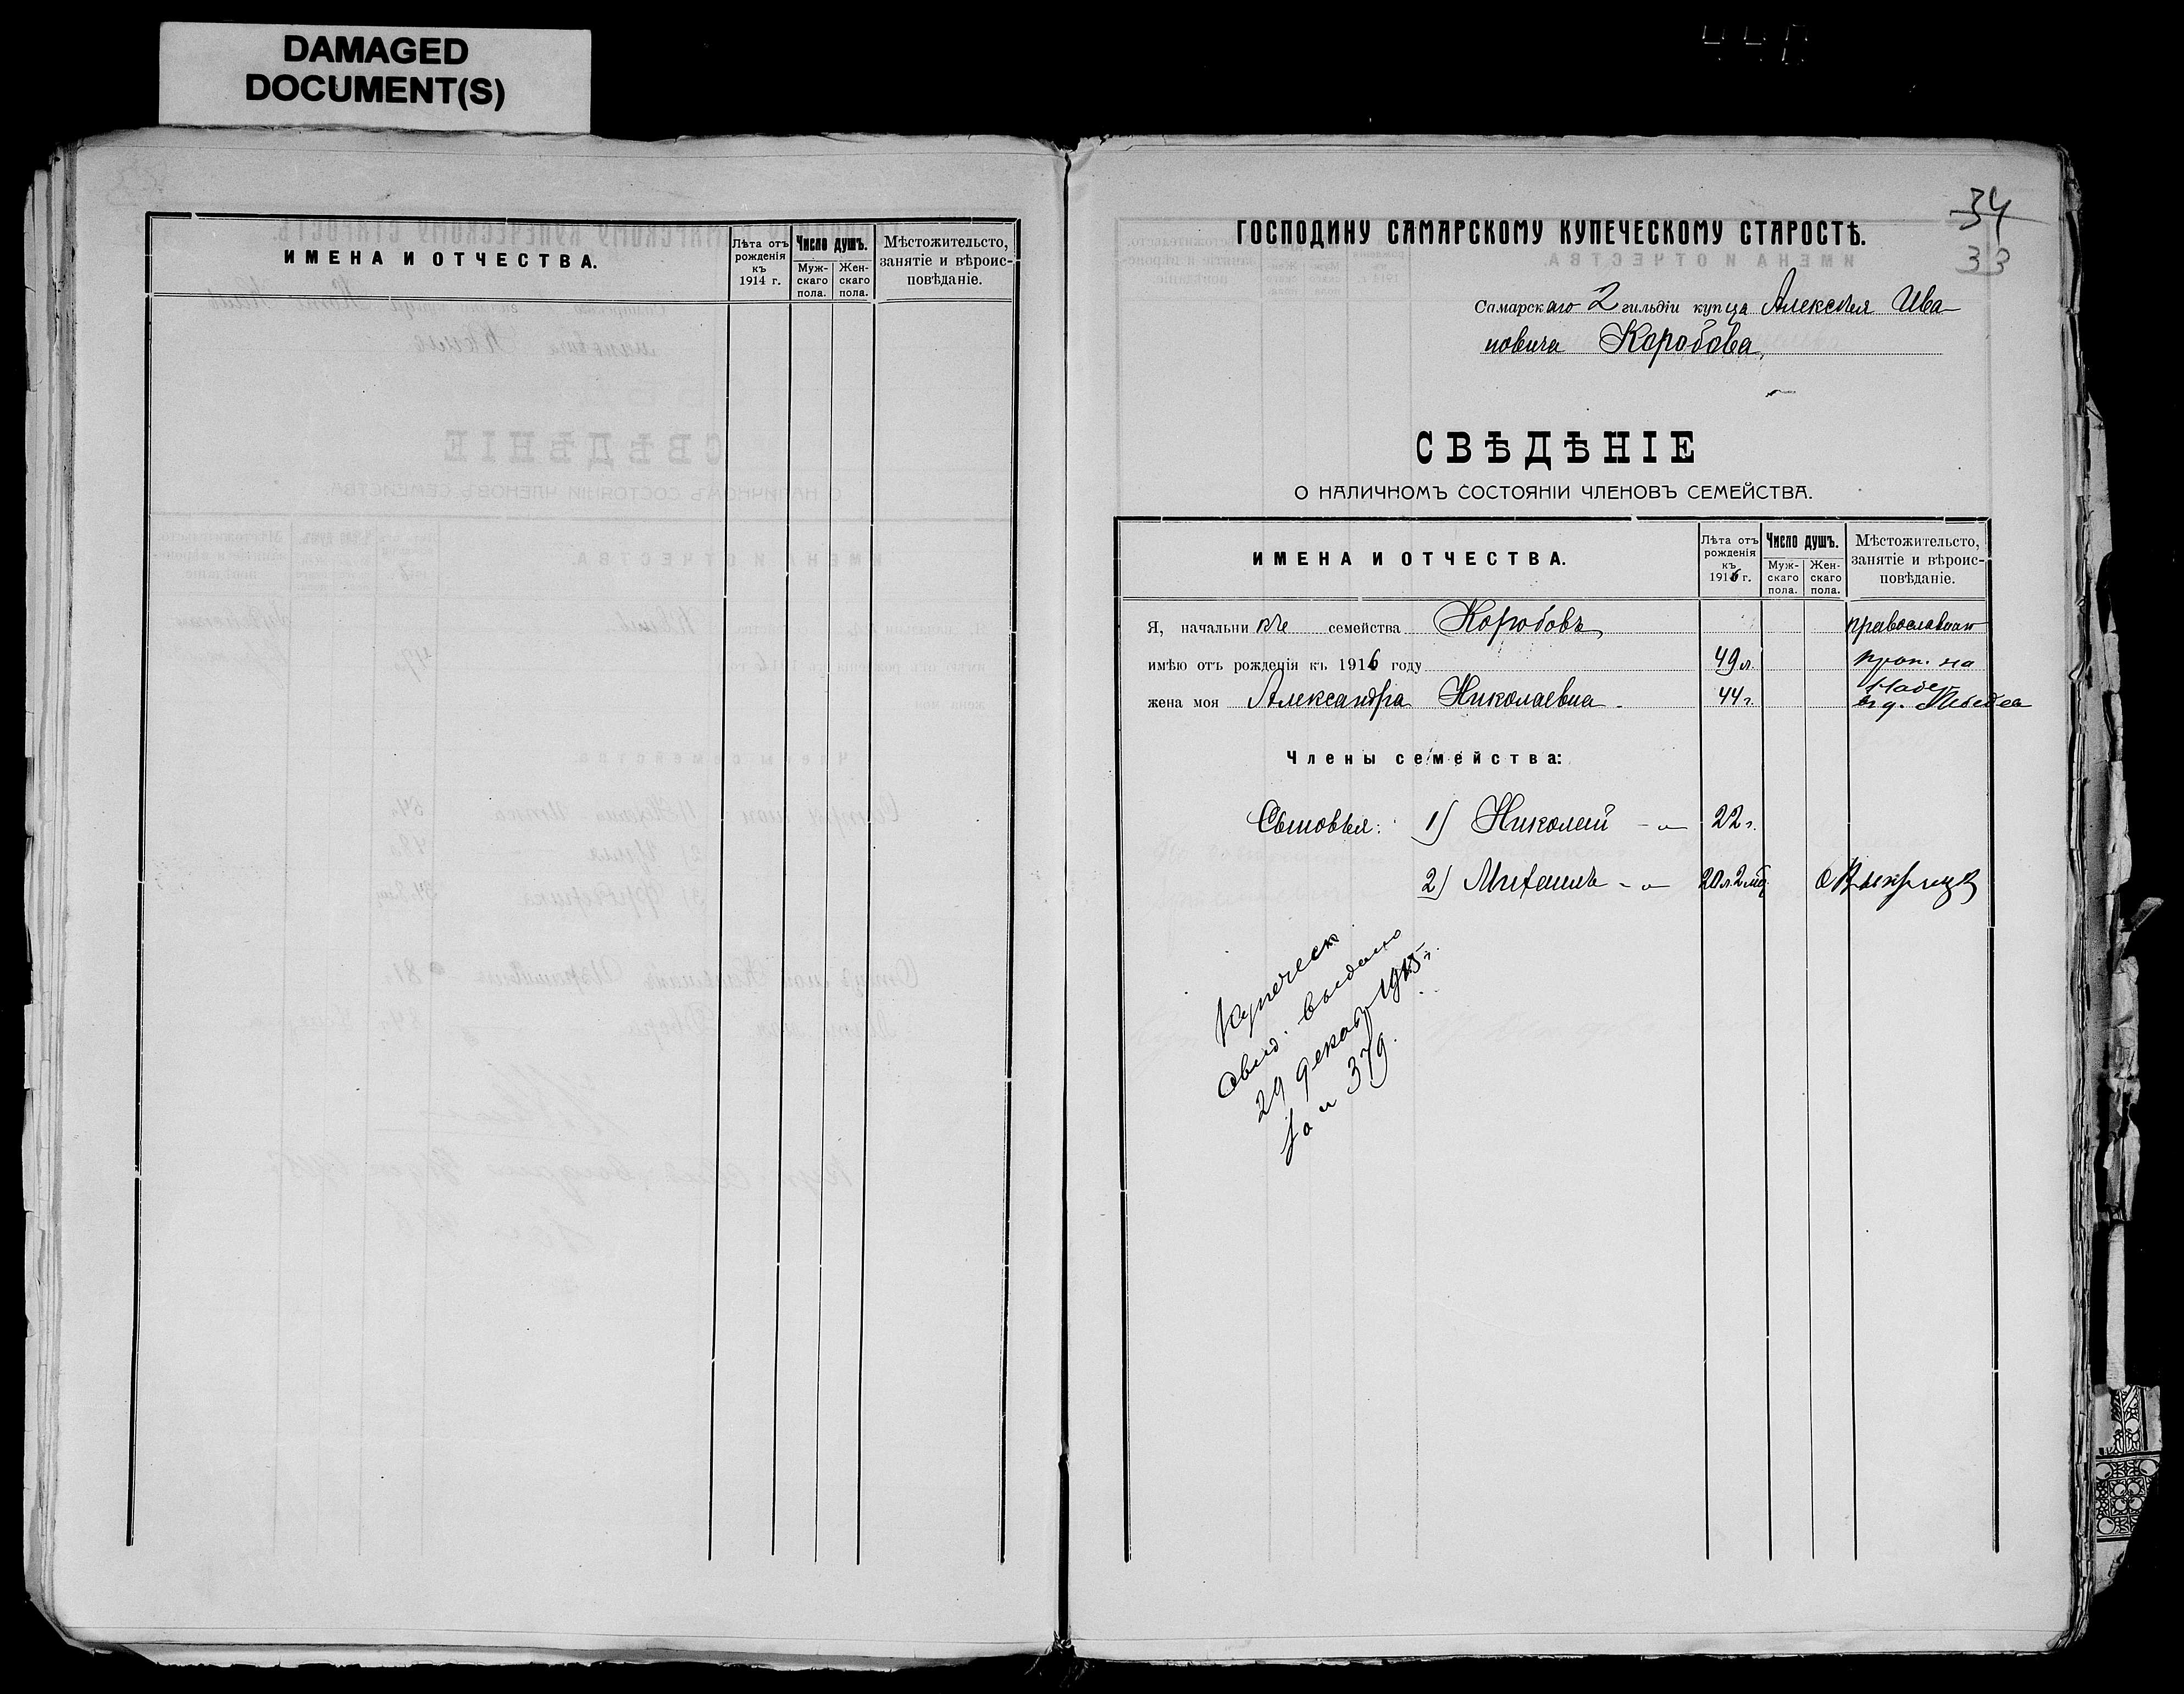 DAMAGED
DOCUMENT(S)
ИМЕНА И ОТЧЕСТВА.
Лѣта отъ рожденія къ 1914 г.
Число душъ.
Муж-скаго пола.
Жен-скаго пола.
Мѣстожительсто, занятіе и вѣроис-повѣданіе.
34
33
ГОСПОДИНУ САМАРСКОМУ КУПЕЧЕСКОМУ СТАРОСТѢ.
Самарскаго 2 гильдіи купца Алексѣя Ива-
новича Коробова,
СВѢДѢНІЕ
О НАЛИЧНОМЪ СОСТОЯНІИ ЧЛЕНОВЪ СЕМЕЙСТВА.
ИМЕНА И ОТЧЕСТВА.
Лѣта отъ рожденія къ 1916 г.
Число душъ.
Муж-скаго пола.
Жен-скаго пола.
Мѣстожительсто, занятіе и вѣроис-повѣданіе.
Я, начальни къ семейства Коробовъ
имѣю отъ рожденія къ 1916 году 49 л.
жена моя Александра Николаевна 44 г.
Члены семейства:
Сыновья: 1) Николай - " - 22 г.
2) Михаилъ - " - 20 л. 2 мѣ
Купеческ
свид. выдано
29 декаб 1915 г.
за № 379.